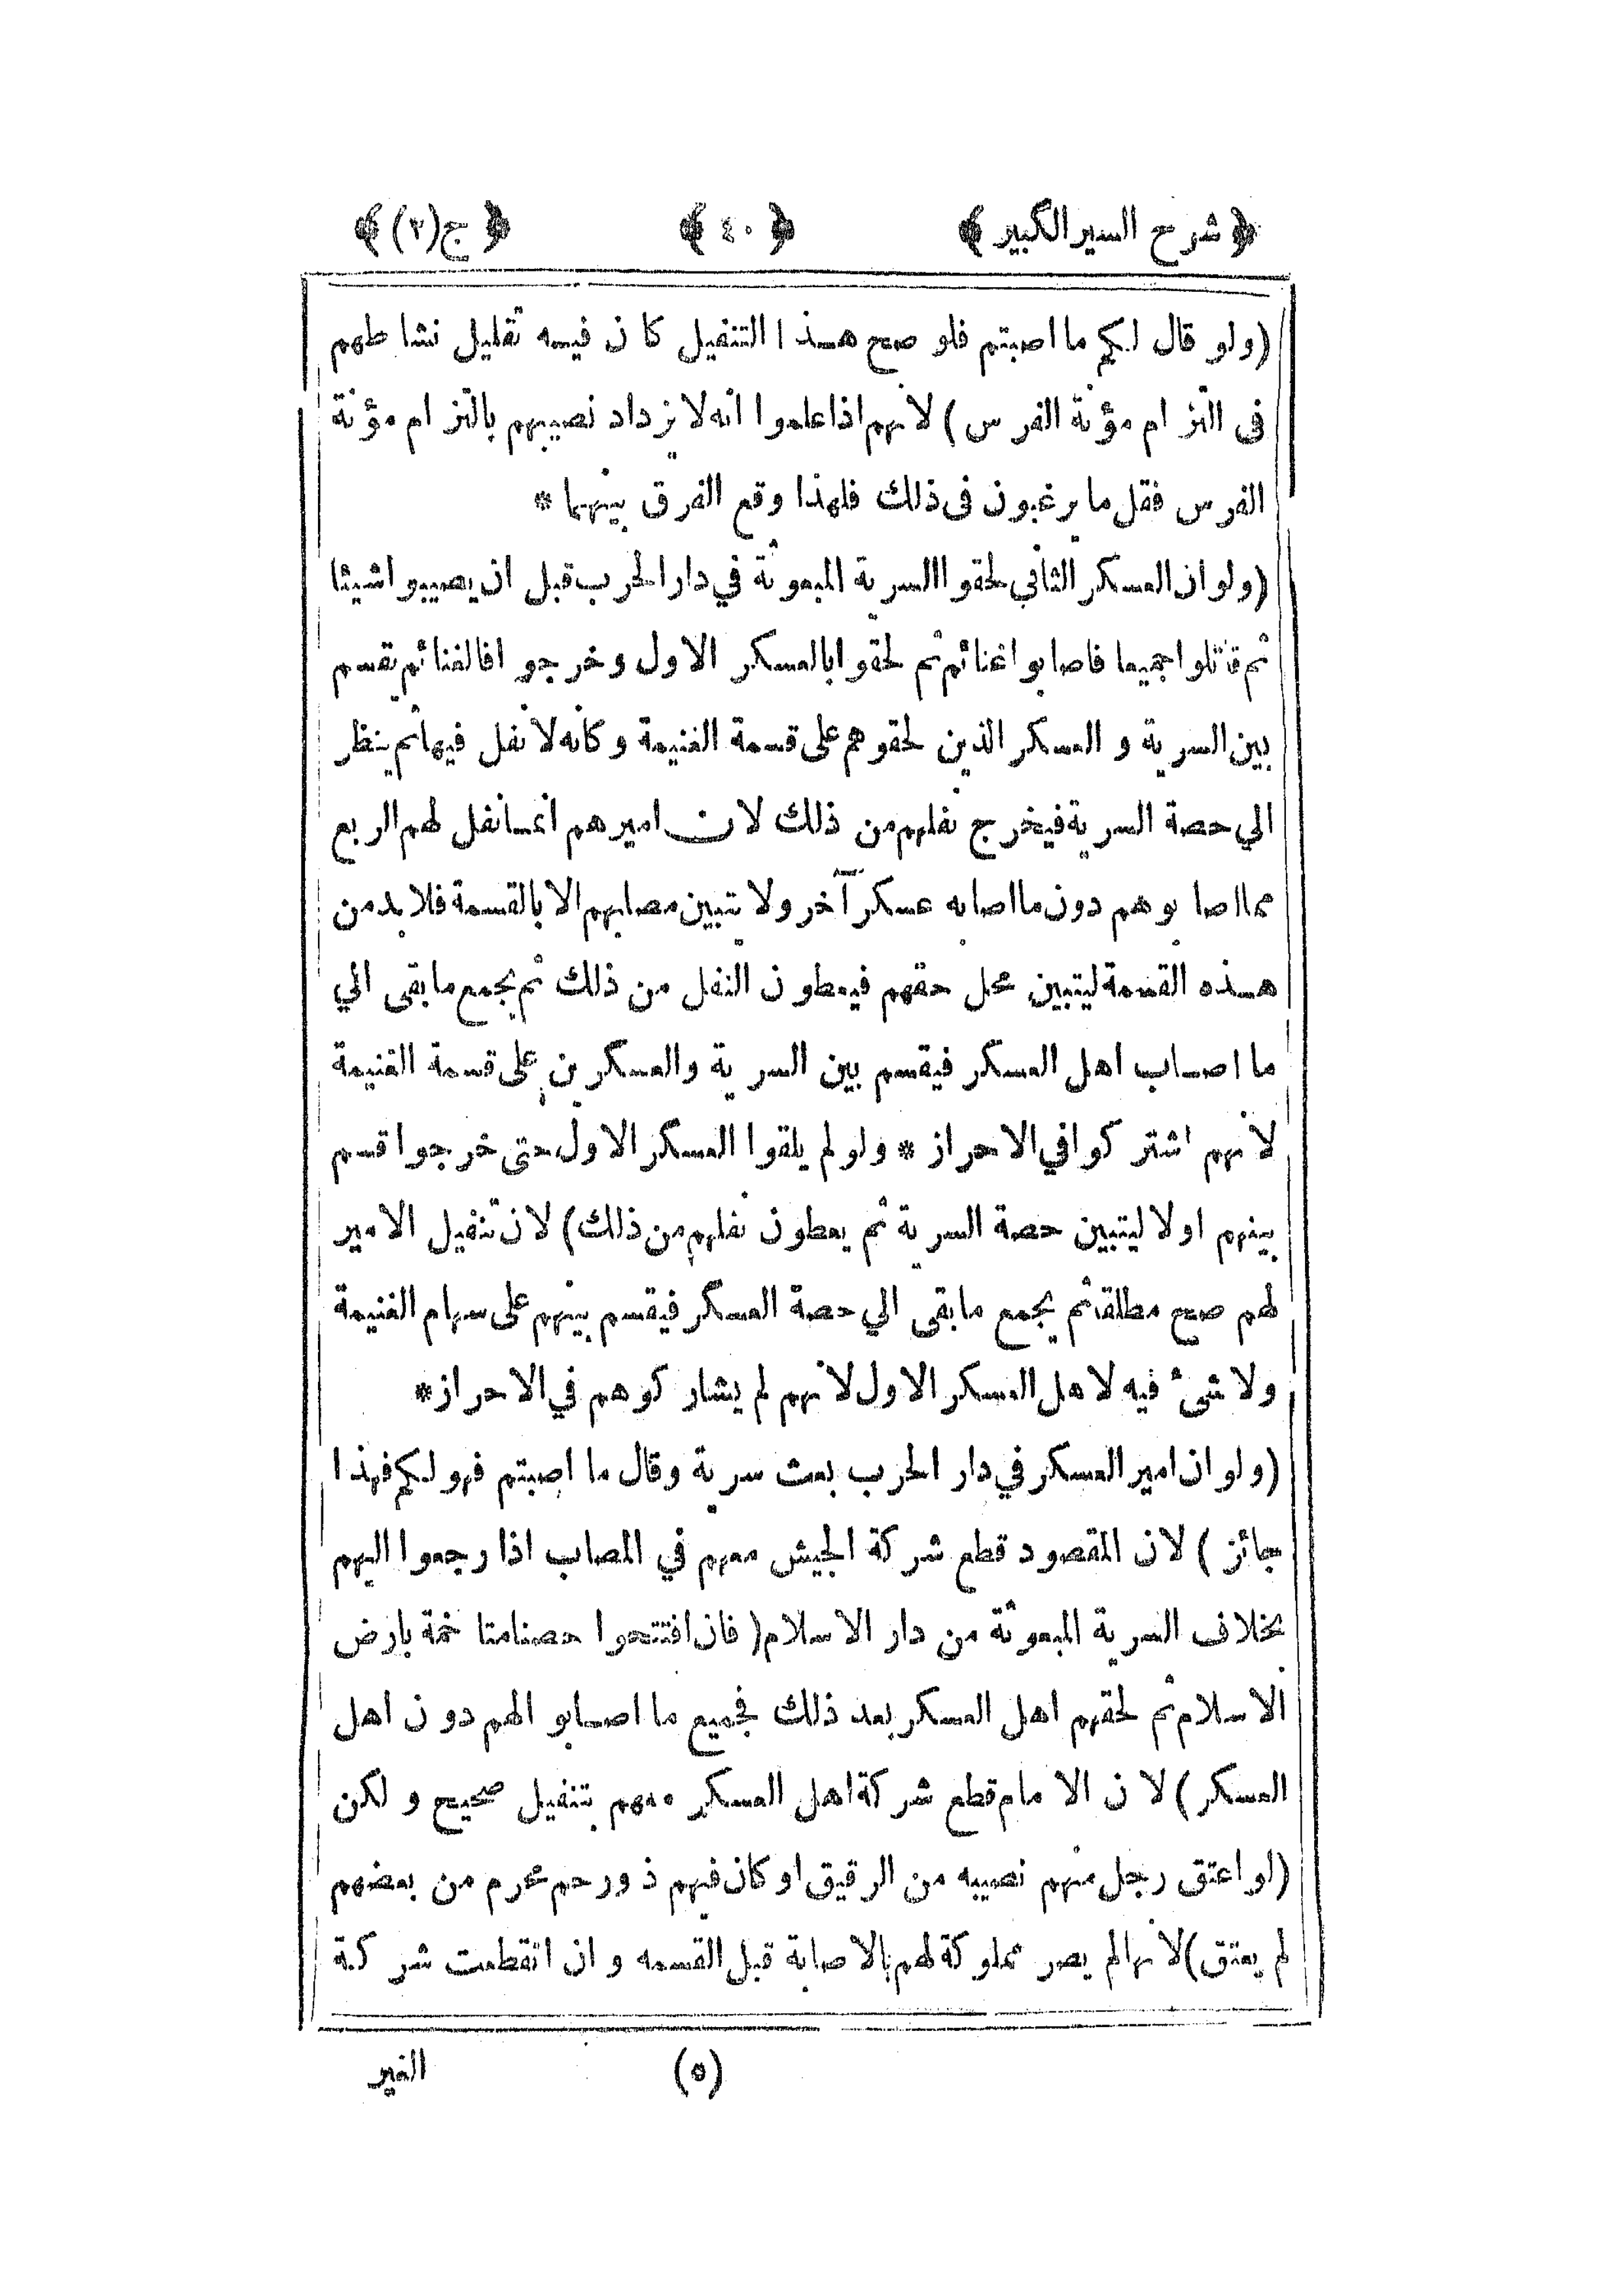 ﴿ شرح السير الكبير ﴾ ﴿ ٤٠ ﴾ ﴿ ج (٢) ﴾
(ولو قال لكم ما اصبتم فلو صح هذا التنفيل كان فيه تقليل نشاطهم
فى التزام مؤنة الفرس) لانهم اذا علموا انه لا يزداد نصيبهم بالتزام مؤنة
الفرس فقل ما يرغبون فى ذلك فلهذا وقع الفرق بينهما *
(ولو ان العسكر الثانى لحقوا السرية المبعوثة في دار الحرب قبل ان يصيبوا شيئا
ثم قاتلوا جميعا فاصابوا غنائم ثم لحقوا بالعسكر الاول وخرجوا فالغنائم تقسم
بين السرية و العسكر الذين لحقوهم على قسمة الغنيمة و كانه لا نفل فيها ثم ينظر
الي حصة السرية فيخرج نفلهم من ذلك لان اميرهم انما نفل لهم الربع
مما اصابوهم دون ما اصابه عسكر آخر ولا يتبين مصابهم الا بالقسمة فلا بد من
هذه القسمة ليتبين محل حقهم فيعطون النفل من ذلك ثم يجمع ما بقى الي
ما اصاب اهل العسكر فيقسم بين السرية والعسكرين على قسمة الغنيمة
لانهم اشتركوا في الاحراز * ولو لم يلقوا العسكر الاول حتى خرجوا قسم
بينهم اولا ليتبين حصة السرية ثم يعطون نفلهم من ذلك) لان تنفيل الامير
لهم صح مطلقا ثم يجمع ما بقى الي حصة العسكر فيقسم بينهم على سهام الغنيمة
ولا شئ فيه لاهل العسكر الاول لانهم لم يشاركوهم في الاحراز *
(ولو ان امير العسكر في دار الحرب بعث سرية وقال ما اصبتم فهو لكم فهذا
جائز) لان المقصود قطع شركة الجيش معهم في المصاب اذا رجعوا اليهم
بخلاف السرية المبعوثة من دار الاسلام (فان افتتحوا حصنا متاخمة بارض
الاسلام ثم لحقهم اهل العسكر بعد ذلك فجميع ما اصابوا لهم دون اهل
العسكر) لان الامام قطع شركة اهل العسكر معهم بتنفيل صحيح و لكن
(لو اعتق رجل منهم نصيبه من الرقيق او كان فيهم ذو رحم محرم من بعضهم
لم يعتق) لانها لم يصر مملوكة لهم بالاصابة قبل القسمه و ان انقطعت شركة
(٥) الغير